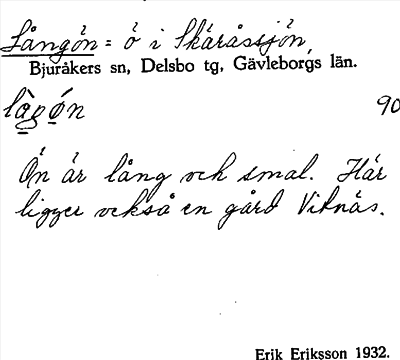 Långön = ö i Skäråssjön,
Bjuråkers sn, Delsbo tg, Gävleborgs län.
làgø̀n 90
Ön är lång och smal. Här
ligger också en gård Viknäs.
Erik Eriksson 1932.